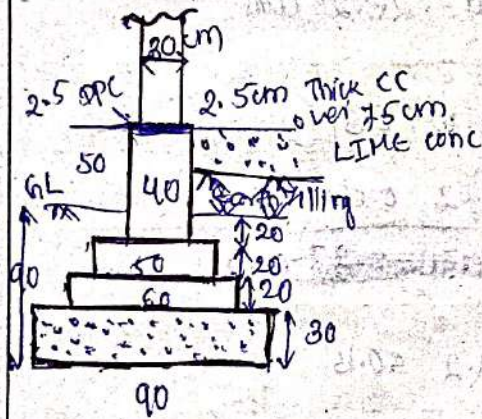 30 cm
2.5 DPC
2.5cm Thick CC
over 7.5cm
LIME conc
50
40
GL
Earth filling
20
90
50
20
60
20
30
90